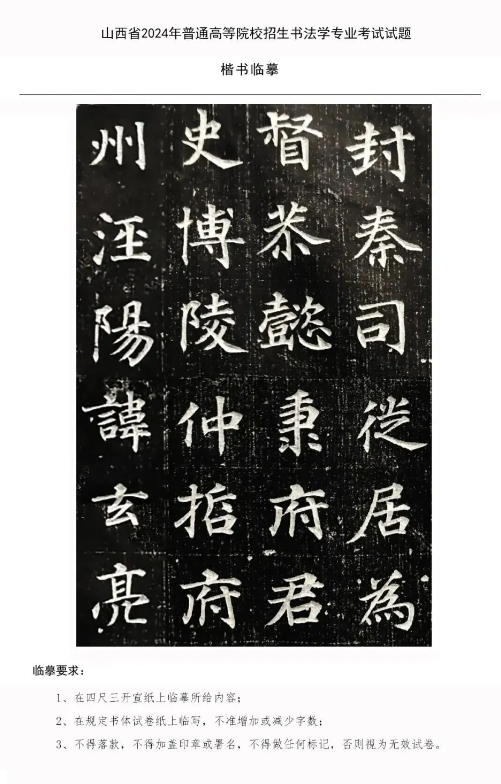 山西省2024年普通高等院校招生书法学专业考试试题
楷书临摹
封秦司徙居為
督恭懿秉府君
史博陵仲哲府
州涇陽諱玄亮
临摹要求:
1、在四尺三开宣纸上临摹所给内容;
2、在规定书体试卷纸上临写，不准增加或减少字数;
3、不得落款，不得加盖印章或署名，不得做任何标记，否则视为无效试卷。